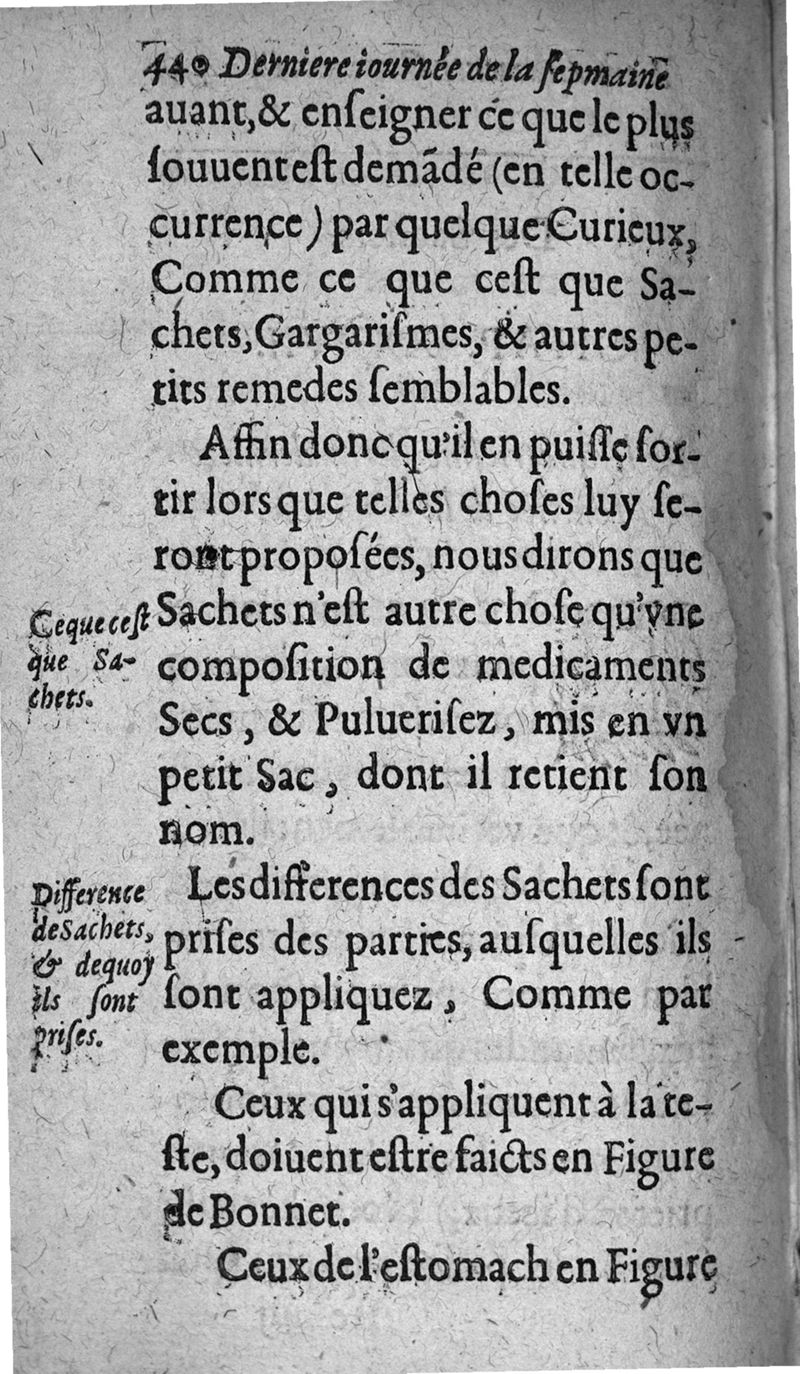 440 Derniere iournée de la ſepmaine
auant, & enſeigner ce que le plus
ſouuent eſt demãdé (en telle oc-
currence) par quelque Curieux,
Comme ce que ceſt que Sa-
chets, Gargariſmes, & autres pe-
tits remedes ſemblables.
Affin donc qu'il en puiſſe ſor-
tir lors que telles choſes luy ſe-
ront propoſées, nous dirons que
Ce que ceſt
que Sa-
chets.
Sachets n'eſt autre choſe qu'vne
compoſition de medicaments
Secs, & Pulueriſez, mis en vn
petit Sac, dont il retient ſon
nom.
Difference
de Sachets,
& dequoy
ils ſont
priſes.
Les differences des Sachets ſont
priſes des parties, auſquelles ils
ſont appliquez, Comme par
exemple.
Ceux qui s'appliquent à la te-
ſte, doiuent eſtre faicts en Figure
de Bonnet.
Ceux de l'eſtomach en Figure